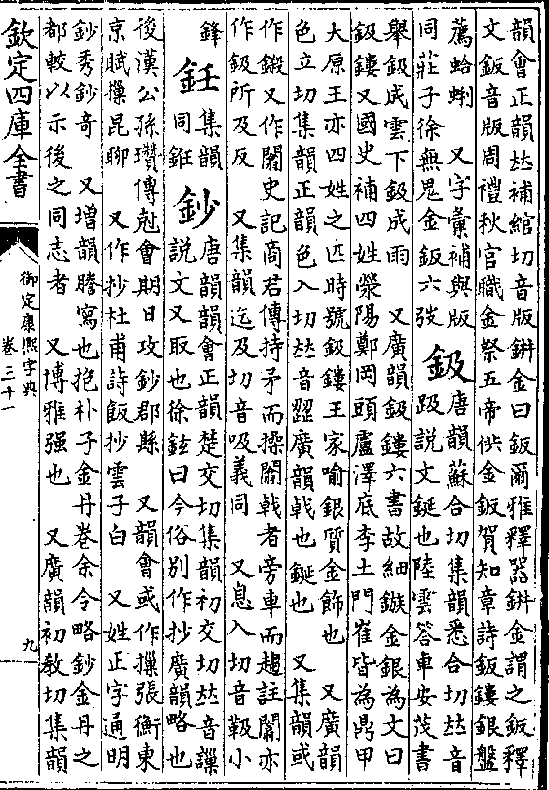 韻會正韻𠀤補綰切音版鉼金曰鈑爾雅釋器鉼金謂之鈑釋
文鈑音版周禮秋官職金祭五帝供金鈑賀知章詩鈑鏤銀盤
薦蛤蜊 又字彙補與版
同莊子徐無鬼金鈑六弢
鈒
唐韻蘇合切集韻悉合切𠀤音
趿說文鋋也陸雲答車安茂書
舉鈒成雲下鈒成雨 又廣韻鈒鏤六書故細鏃金銀為文曰
鈒鏤又國史補四姓滎陽鄭岡頭盧澤底李土門崔皆為鼎甲
大原王亦四姓之匹時號鈒鏤王家喻銀質金飾也 又廣韻
色立切集韻正韻色入切𠀤音澀廣韻戟也鋋也 又集韻或
作鍛又作闟史記商君傳持矛而操闟戟者旁車而趨註闟亦
作鈒所及反 又集韻迄及切音吸義同 又息入切音靸小
鋒
鈓
集韻
同銋
鈔
唐韻韻會正韻楚交切集韻初交切𠀤音䜈
說文叉取也徐鉉曰今俗別作抄廣韻略也
後漢公孫瓚傳尅會期日攻鈔郡縣 又韻會或作摷張衡東
京賦摷昆聊 又作抄杜甫詩飯抄雲子白 又姓正字通明
鈔秀鈔奇 又增韻謄寫也抱朴子金丹卷余今略鈔金丹之
都較以示後之同志者 又博雅强也 又廣韻初教切集韻
欽定四庫全書
御定康熙字典
卷三十一
九